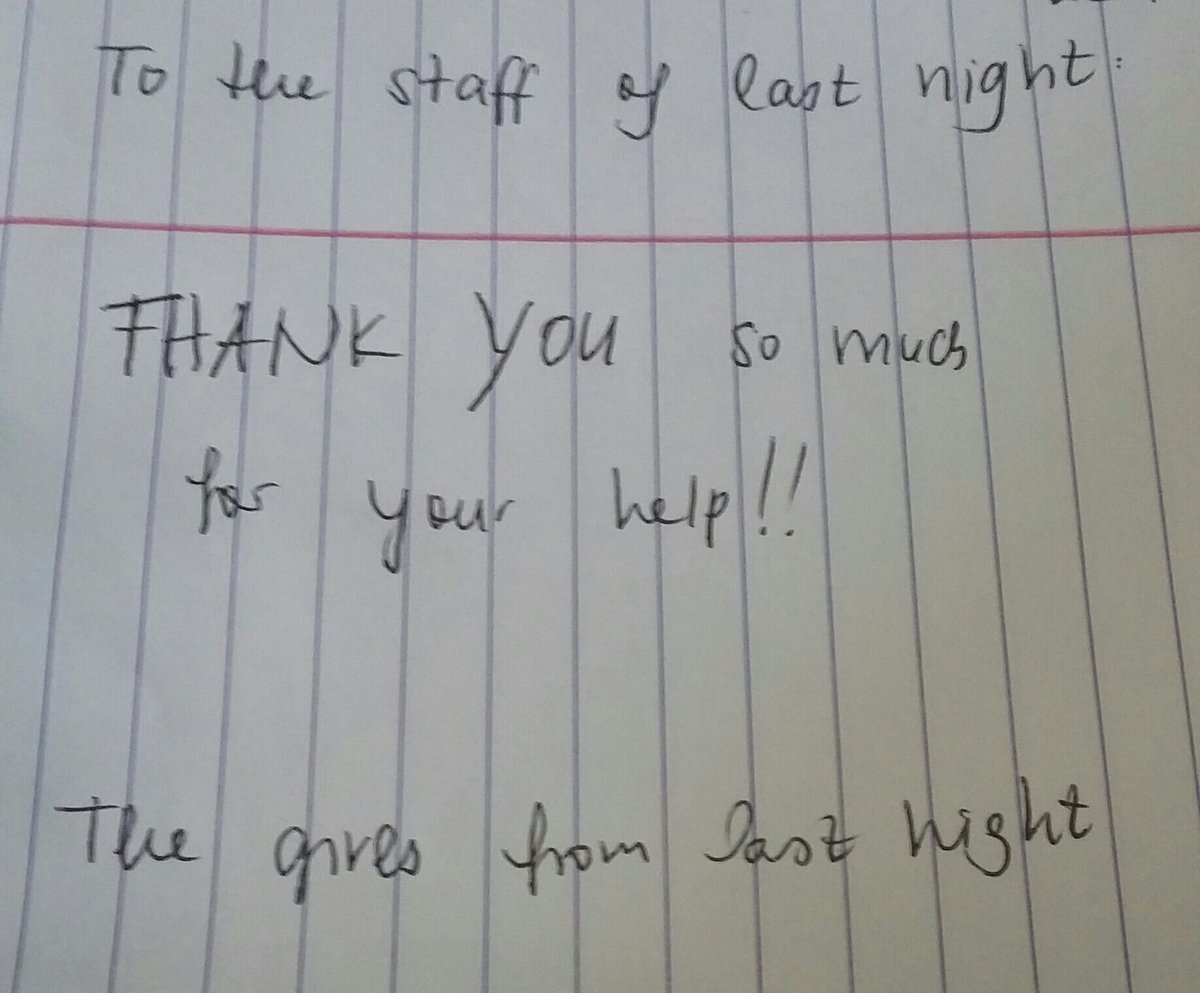 To the staff of last night:
THANK YOU so much
for your help!!
The girls from last night